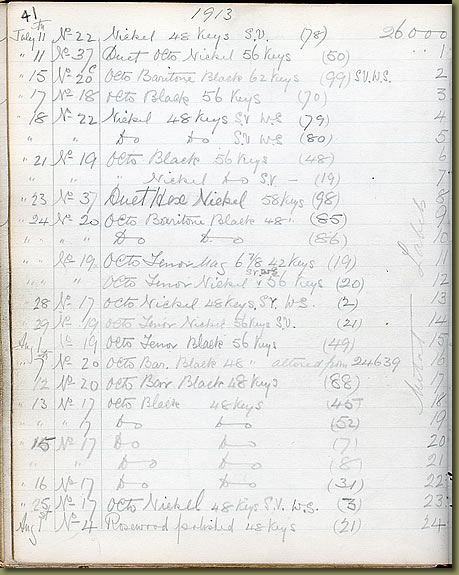 41
1913
July 11 No 22 Nickel 48 Keys S.V. (78) 26000
" 11 No 37 Duet Octo Nickel 56 Keys (50) " " 1
" 15 No 20c Octo Baritone Black 62 Keys (99) S.V. W.S. 2
" 17 No 18 Octo Black 56 Keys (70) 3
" 18 No 22 Nickel 48 Keys S.V. W.S (79) 4
" " " Do Do S.V W.S (80) 5
" 21 No 19 Octo Black 56 Keys (48) 6
" " " Nickel Do S.V – (19) 7
" 23 No 37 Duet Hex Nickel 58 Keys (98) 8
" 24 No 20 Octo Baritone Black 48 " (85) 9
" " " Do Do (86) 10
No 19 Octo Tenor 6 7/8 42 Keys (19) 11
" " Octo Tenor Nickel S.V. W.S 56 Keys (20) 12
" 28 No 17 Octo Nickel 48 Keys S.V. W.S. (2) 13
" 29 No 19 Octo Tenor Nickel 56 Keys S.V. (21) 14
Aug 1 No 19 Octo Tenor Black 56 Keys (49) 15
" 7 No 20 Octo Bar. Black 48 " altered from 24639 16
" 12 No 20 Octo Barr Black 48 Keys (88) 17
" 13 No 17 Octo Black 48 Keys (45) 18
" " " 7 Do Do (52) 19
" 15 No 17 Do Do (7) 20
" " " Do Do (8) 21
" 16 No 17 Do Do (31) 22
" 25 No 17 Octo Nickel 48 Keys S.V. W.S. (3) 23
Aug 1st No 4 Rosewood polished 48 Keys (21) 24
Labels